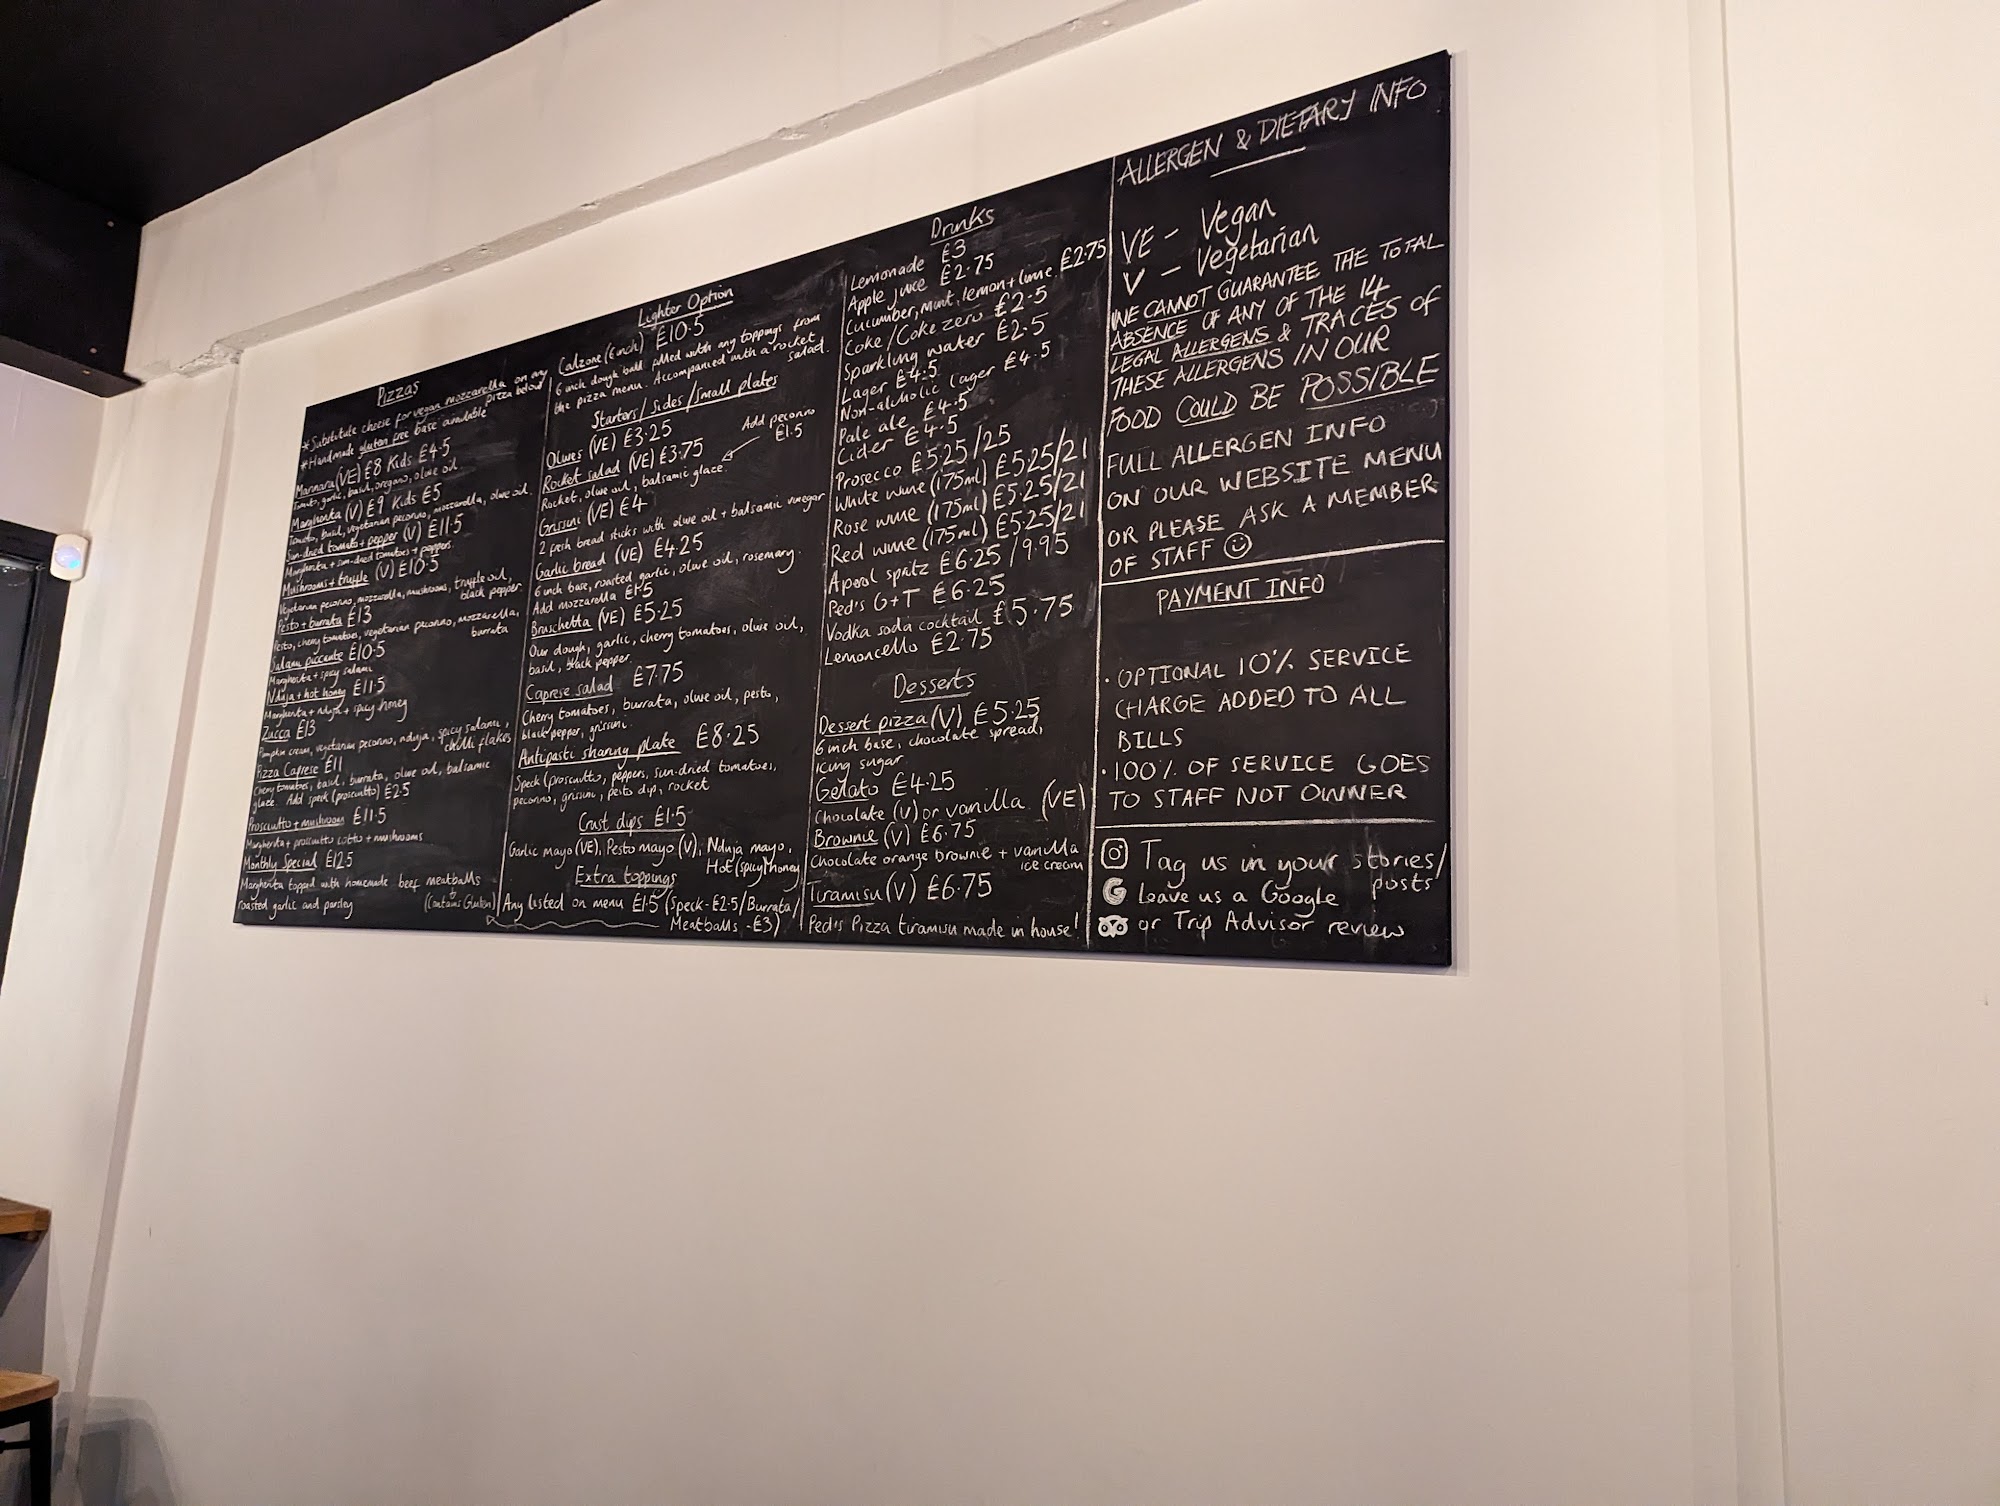 Pizzas
*Substitute cheese for vegan mozzarella on any pizza below
*Handmade gluten free base available
Marinara (VE) £8 Kids £4.5
Tomato, garlic, basil, oregano, olive oil.
Margherita (V) £9 Kids £5
Tomato, basil, vegetarian pecorino, mozzarella, olive oil.
Sun-dried tomato + pepper (V) £11.5
Margherita + sun-dried tomatoes + peppers.
Mushrooms + truffle (V) £10.5
Vegetarian pecorino, mozzarella, mushrooms, truffle oil,
black pepper.
Pesto + burrata £13
Pesto, cherry tomatoes, vegetarian pecorino, mozzarella,
burrata
Salami piccante £10.5
Margherita + spicy salami
Nduja + hot honey £11.5
Margherita + nduja + spicy honey
Zucca £13
Pumpkin cream, vegetarian pecorino, nduja, spicy salami,
chilli flakes
Pizza Caprese £11
Cherry tomatoes, basil, burrata, olive oil, balsamic
glaze. Add speck (prosciutto) £2.5
Prosciutto + mushroom £11.5
Margherita + prosciutto cotto + mushrooms
Monthly Special £12.5
Margherita topped with homemade beef meatballs
roasted garlic and parsley (Contains Gluten)
Lighter Option
Calzone (6 inch) £10.5
6 inch dough ball filled with any toppings from
the pizza menu. Accompanied with a rocket
salad.
Starters/Sides/Small plates
Olives (VE) £3.25
Rocket salad (VE) £3.75
Add pecorino
£1.5
Rocket, olive oil, balsamic glaze.
Grissini (VE) £4
2 fresh bread sticks with olive oil + balsamic vinegar
Garlic bread (VE) £4.25
6 inch base, roasted garlic, olive oil, rosemary.
Add mozzarella £1.5
Bruschetta (VE) £5.25
Our dough, garlic, cherry tomatoes, olive oil,
basil, black pepper.
Caprese salad £7.75
Cherry tomatoes, burrata, olive oil, pesto,
black pepper, grissini.
Antipasti sharing plate £8.25
Speck (prosciutto, peppers, sun-dried tomatoes,
pecorino, grissini, pesto dip, rocket
Crust dips £1.5
Garlic mayo (VE), Pesto mayo (V), Nduja mayo,
Hot (spicy) honey
Extra toppings
Any listed on menu £1.5 (Speck - £2.5/Burrata/
Meatballs - £3)
Drinks
Lemonade £3
Apple juice £2.75
Cucumber, mint, lemon + lime £2.75
Coke/Coke zero £2.5
Sparkling water £2.5
Lager £4.5
Non-alcoholic lager £4.5
Pale ale £4.5
Cider £4.5
Prosecco £5.25/25
White wine (175ml) £5.25/21
Rose wine (175ml) £5.25/21
Red wine (175ml) £5.25/21
Aperol spritz £6.25/9.95
Ped's G+T £6.25
Vodka soda cocktail £5.75
Lemoncello £2.75
Desserts
Dessert pizza (V) £5.25
6 inch base, chocolate spread,
icing sugar
Gelato £4.25
Chocolate (V) or vanilla (VE)
Brownie (V) £6.75
Chocolate orange brownie + vanilla
ice cream
Tiramisu (V) £6.75
Ped's Pizza tiramisu made in house!
ALLERGEN & DIETARY INFO
VE - Vegan
V - Vegetarian
WE CANNOT GUARANTEE THE TOTAL
ABSENCE OF ANY OF THE 14
LEGAL ALLERGENS & TRACES OF
THESE ALLERGENS IN OUR
FOOD COULD BE POSSIBLE
FULL ALLERGEN INFO
ON OUR WEBSITE MENU
OR PLEASE ASK A MEMBER
OF STAFF ☺
PAYMENT INFO
· OPTIONAL 10% SERVICE
CHARGE ADDED TO ALL
BILLS
· 100% OF SERVICE GOES
TO STAFF NOT OWNER
Tag us in your stories/
posts
G Leave us a Google
or Trip Advisor review